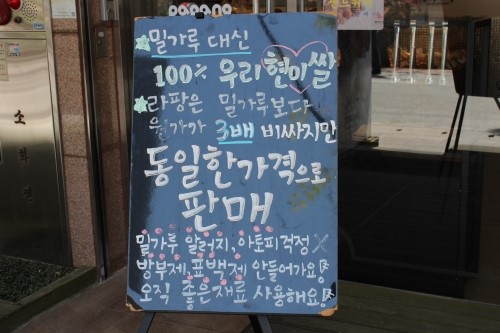 밀가루 대신
100% 우리 현미쌀
라팡은 밀가루보다
원가가 3배 비싸지만
동일한가격으로
판매
밀가루 알러지, 아토피걱정 X
방부제, 표백제 안들어가요!
오직 좋은재료 사용해요!
소화전